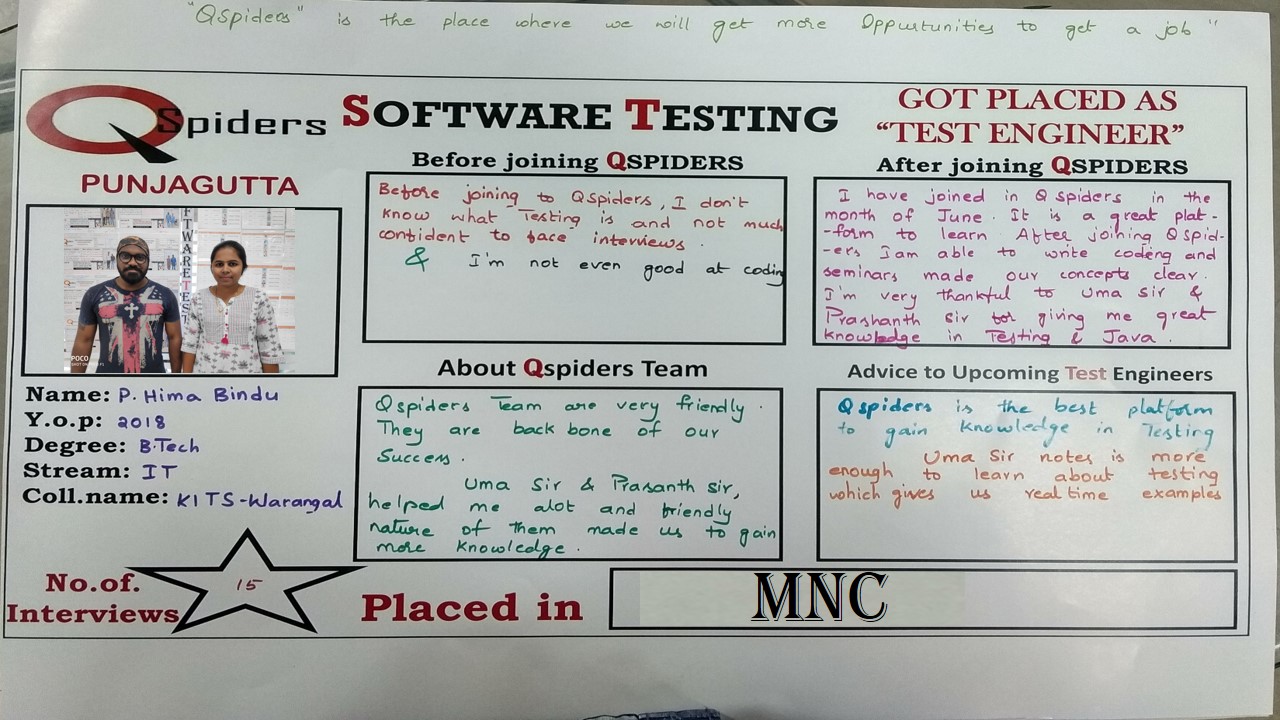 "Qspiders" is the place where we will get more Oppurtunities to get a job"
QSpiders
SOFTWARE TESTING
GOT PLACED AS
"TEST ENGINEER"
PUNJAGUTTA
Before joining QSPIDERS
Before joining to Qspiders, I don't
know what Testing is and not much
confident to face interviews.
& I'm not even good at coding
After joining QSPIDERS
I have joined in Qspiders in the
month of June. It is a great plat-
-form to learn. After joining Qspid-
-ers I am able to write coding and
seminars made our concepts clear.
I'm very thankful to Uma Sir &
Prashanth sir for giving me great
knowledge in Testing & Java.
POCO
Name: P. Hima Bindu
Y.o.p: 2018
Degree: B.Tech
Stream: IT
Coll.name: KITS-Warangal
About Qspiders Team
Qspiders Team are very friendly.
They are back bone of our
Success.
Uma Sir & Prasanth sir,
helped me alot and friendly
nature of them made us to gain
more knowledge.
Advice to Upcoming Test Engineers
Qspiders is the best platform
to gain knowledge in Testing
Uma Sir notes is more
enough to learn about testing
which gives us real time examples
No.of.
Interviews
15
Placed in
MNC